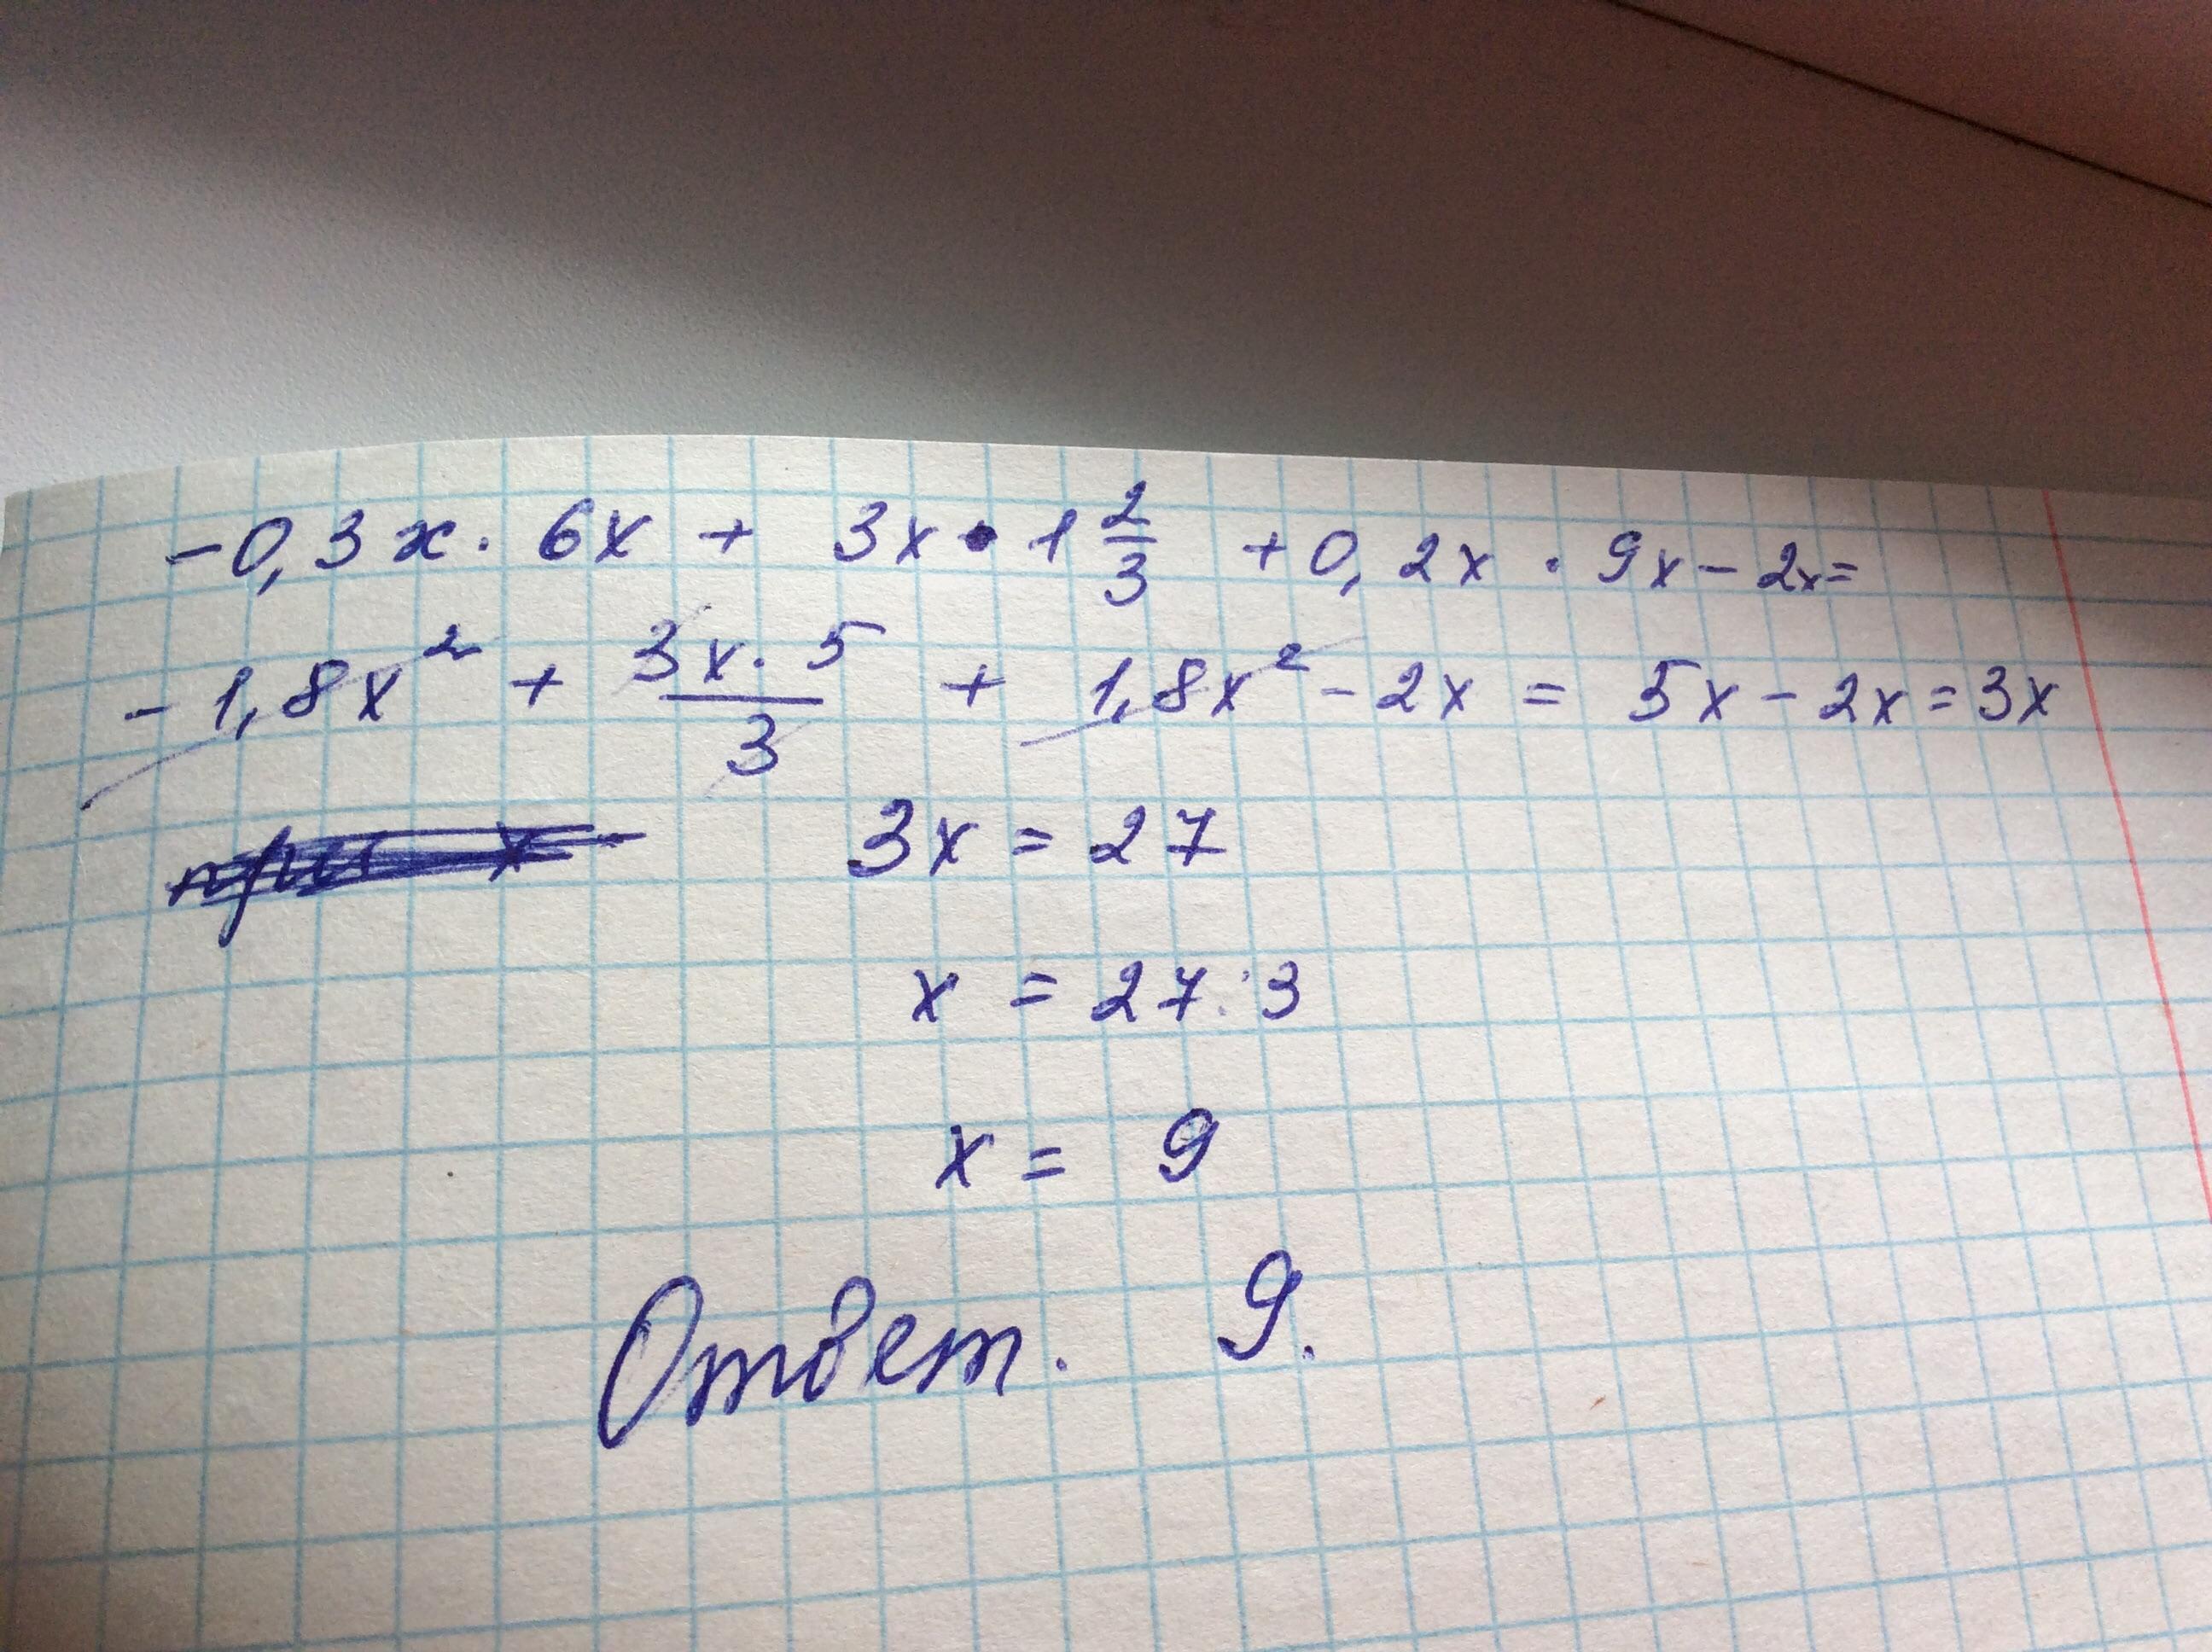 -0,3x · 6x + 3x · 1 2/3 + 0,2x · 9x - 2x =
- 1,8x² + 3x · 5/3 + 1,8x² - 2x = 5x - 2x = 3x
3x = 27
x = 27 : 3
x = 9
Ответ. 9.